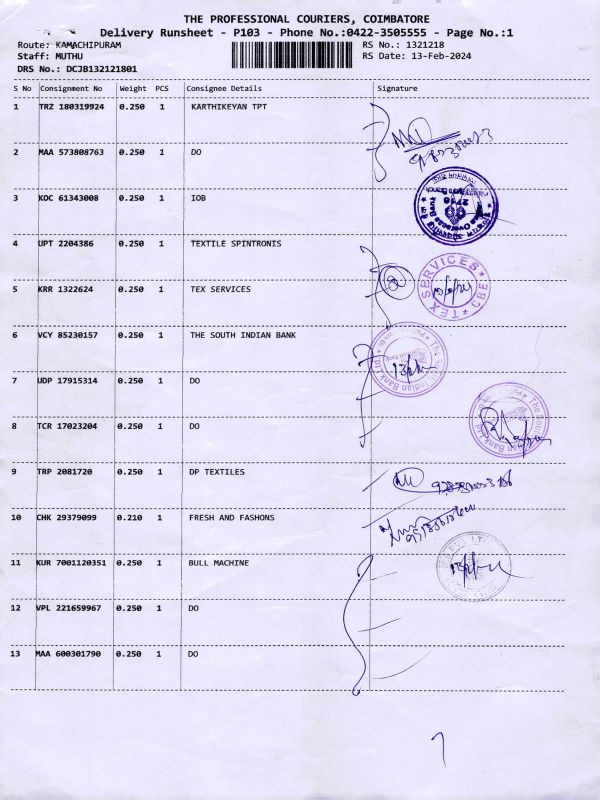 THE PROFESSIONAL COURIERS, COIMBATORE
Delivery Runsheet - P103 - Phone No.:0422-3505555 - Page No.:1
Route: KAMACHIPURAM
RS No.: 1321218
Staff: MUTHU
RS Date: 13-Feb-2024
DRS No.: DCJB132121801
S No Consignment No Weight PCS Consignee Details Signature
1 TRZ 180319924 0.250 1 KARTHIKEYAN TPT
2 MAA 573808763 0.250 1 DO
3 KOC 61343008 0.250 1 IOB
4 UPT 2204386 0.250 1 TEXTILE SPINTRONIS
5 KRR 1322624 0.250 1 TEX SERVICES
TEX SERVICES * CBE *
6 VCY 85230157 0.250 1 THE SOUTH INDIAN BANK
7 UDP 17915314 0.250 1 DO
8 TCR 17023204 0.250 1 DO
The South Indian Bank Ltd
9 TRP 2081720 0.250 1 DP TEXTILES
10 CHK 29379099 0.210 1 FRESH AND FASHONS
11 KUR 7001120351 0.250 1 BULL MACHINE
12 VPL 221659967 0.250 1 DO
13 MAA 600301790 0.250 1 DO